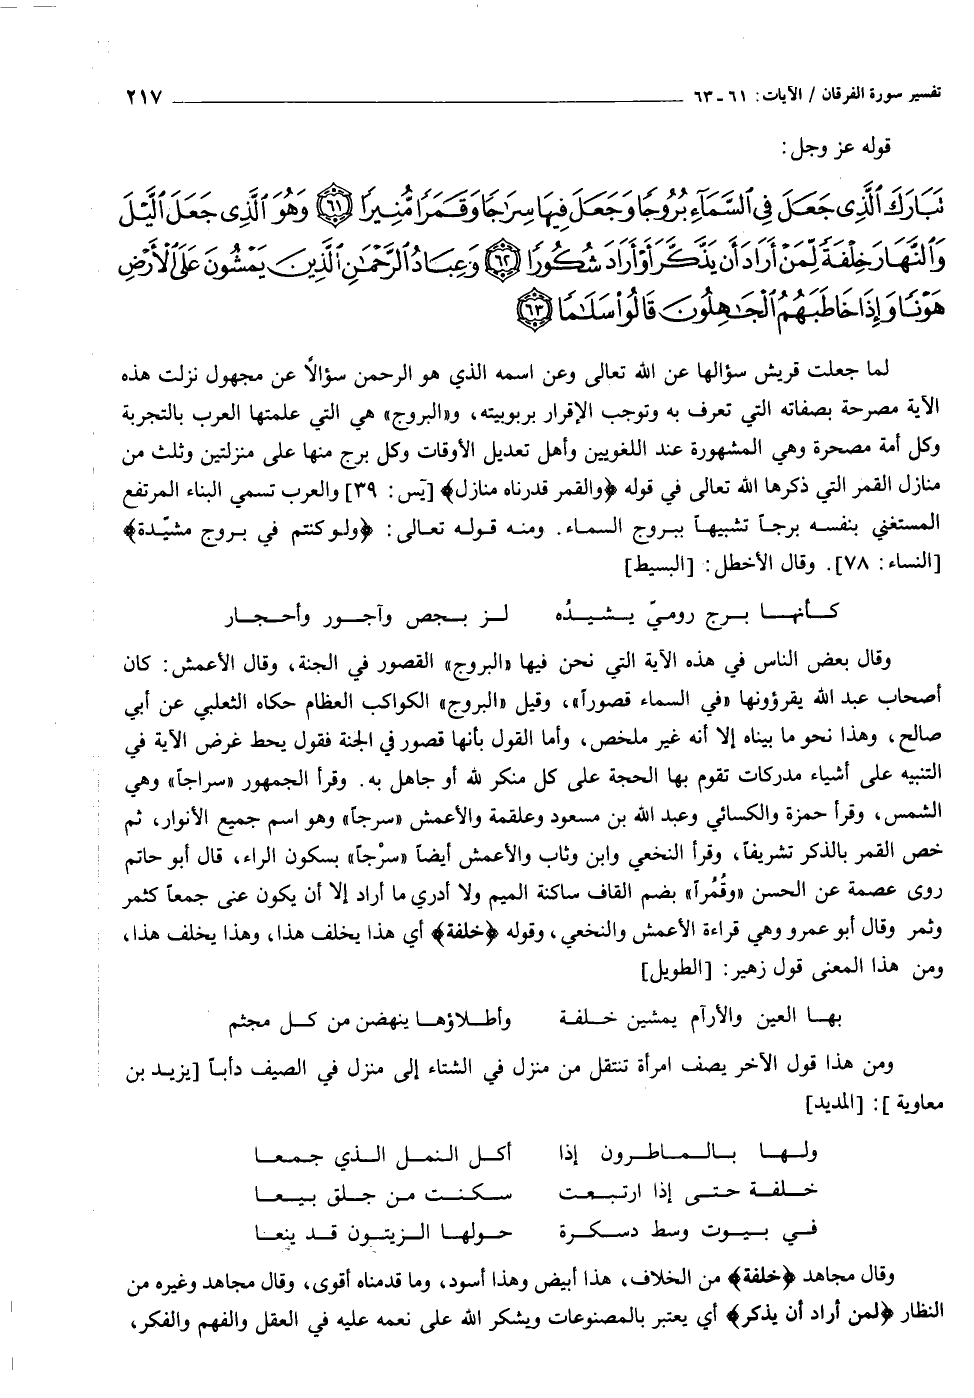 تفسير سورة الفرقان / الآيات: ٦١ ـ ٦٣ ٢١٧
قوله عز وجل:
تَبَارَكَ ٱلَّذِى جَعَلَ فِى ٱلسَّمَآءِ بُرُوجًا وَجَعَلَ فِيهَا سِرَٰجًا وَقَمَرًا مُّنِيرًا ﴿٦١﴾ وَهُوَ ٱلَّذِى جَعَلَ ٱلَّيْلَ
وَٱلنَّهَارَ خِلْفَةً لِّمَنْ أَرَادَ أَن يَذَّكَّرَ أَوْ أَرَادَ شُكُورًا ﴿٦٢﴾ وَعِبَادُ ٱلرَّحْمَٰنِ ٱلَّذِينَ يَمْشُونَ عَلَى ٱلْأَرْضِ
هَوْنًا وَإِذَا خَاطَبَهُمُ ٱلْجَٰهِلُونَ قَالُوا۟ سَلَٰمًا ﴿٦٣﴾
لما جعلت قريش سؤالها عن الله تعالى وعن اسمه الذي هو الرحمن سؤالاً عن مجهول نزلت هذه
الآية مصرحة بصفاته التي تعرف به وتوجب الإقرار بربوبيته، و«البروج» هي التي علمتها العرب بالتجربة
وكل أمة مصحرة وهي المشهورة عند اللغويين وأهل تعديل الأوقات وكل برج منها على منزلتين وثلث من
منازل القمر التي ذكرها الله تعالى في قوله ﴿والقمر قدرناه منازل﴾ [يَس: ٣٩] والعرب تسمي البناء المرتفع
المستغني بنفسه برجاً تشبيهاً ببروج السماء. ومنه قوله تعالى: ﴿ولو كنتم في بروج مشيّدة﴾
[النساء: ٧٨]. وقال الأخطل: [البسيط]
كأنها برج روميّ يشيدُه لز بجص وآجور وأحجار
وقال بعض الناس في هذه الآية التي نحن فيها «البروج» القصور في الجنة، وقال الأعمش: كان
أصحاب عبد الله يقرؤونها «في السماء قصوراً»، وقيل «البروج» الكواكب العظام حكاه الثعلبي عن أبي
صالح، وهذا نحو ما بيناه إلا أنه غير ملخص، وأما القول بأنها قصور في الجنة فقول يحط غرض الآية في
التنبيه على أشياء مدركات تقوم بها الحجة على كل منكر لله أو جاهل به. وقرأ الجمهور «سراجاً» وهي
الشمس، وقرأ حمزة والكسائي وعبد الله بن مسعود وعلقمة والأعمش «سرجاً» وهو اسم جميع الأنوار، ثم
خص القمر بالذكر تشريفاً، وقرأ النخعي وابن وثاب والأعمش أيضاً «سرْجاً» بسكون الراء، قال أبو حاتم
روى عصمة عن الحسن «وقُمُراً» بضم القاف ساكنة الميم ولا أدري ما أراد إلا أن يكون عنى جمعاً كثمر
وثمر وقال أبو عمرو وهي قراءة الأعمش والنخعي، وقوله ﴿خلفة﴾ أي هذا يخلف هذا، وهذا يخلف هذا،
ومن هذا المعنى قول زهير: [الطويل]
بها العين والأرآم يمشين خلفة وأطلاؤها ينهضن من كل مجثم
ومن هذا قول الآخر يصف امرأة تنتقل من منزل في الشتاء إلى منزل في الصيف دأباً [يزيد بن
معاوية ]: [المديد]
ولها بالماطرون إذا أكل النمل الذي جمعا
خلفة حتى إذا ارتبعت سكنت من جلق بيعا
في بيوت وسط دسكرة حولها الزيتون قد ينعا
وقال مجاهد ﴿خلفة﴾ من الخلاف، هذا أبيض وهذا أسود، وما قدمناه أقوى، وقال مجاهد وغيره من
النظار ﴿لمن أراد أن يذكر﴾ أي يعتبر بالمصنوعات ويشكر الله على نعمه عليه في العقل والفهم والفكر،